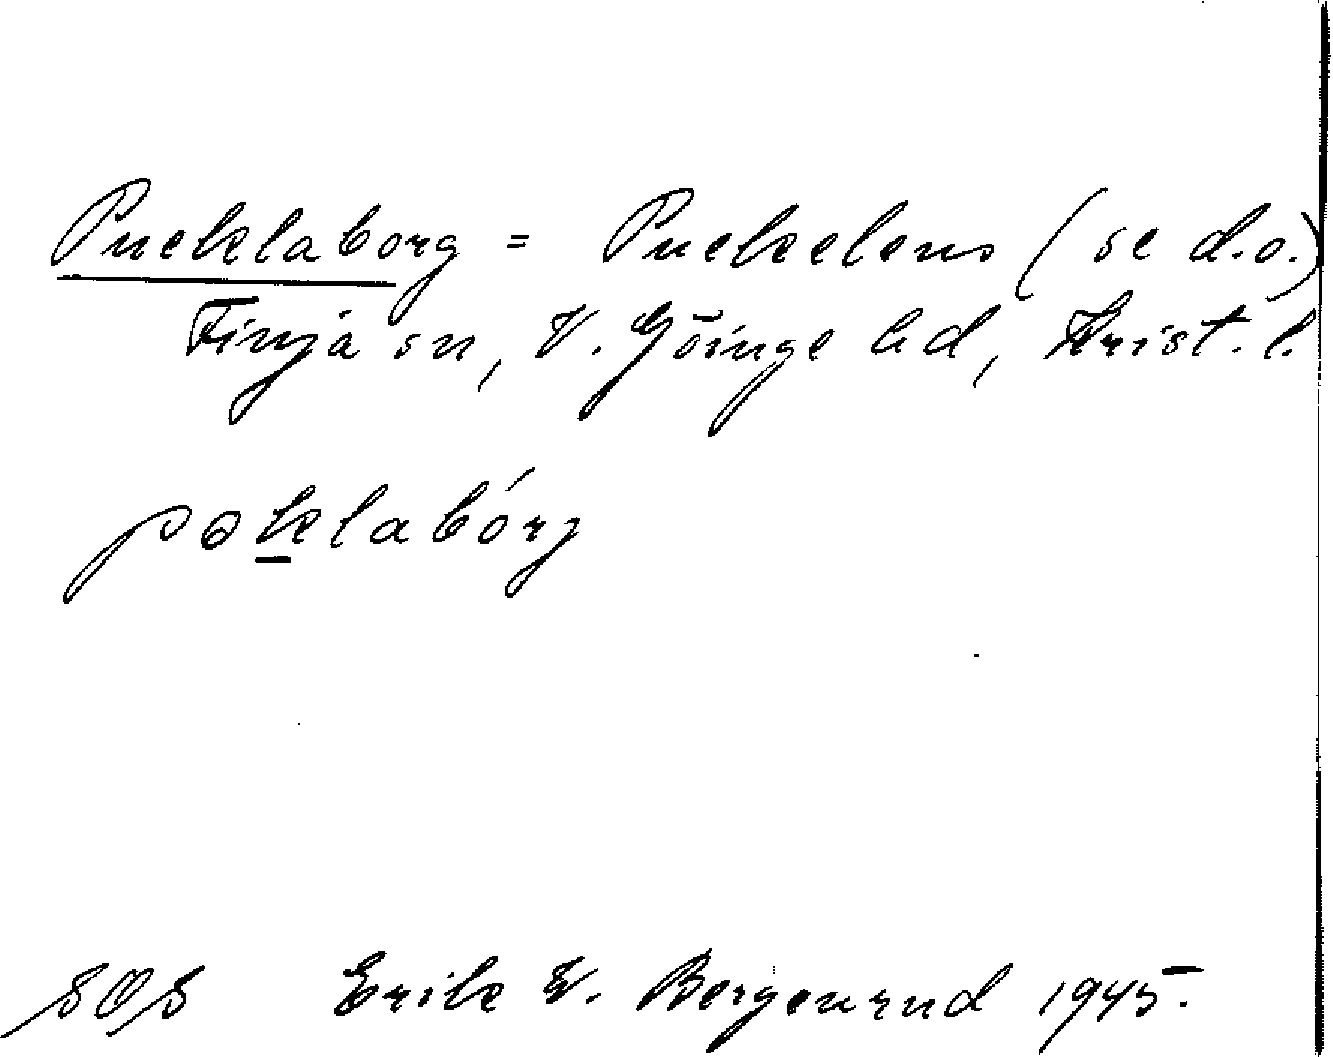 Pucklaborg = Puckelens (se d.o.)
Finja sn, V. Göinge hd, Krist. l.
pɵklabórj
SOS Erik W. Bergenrud 1945.